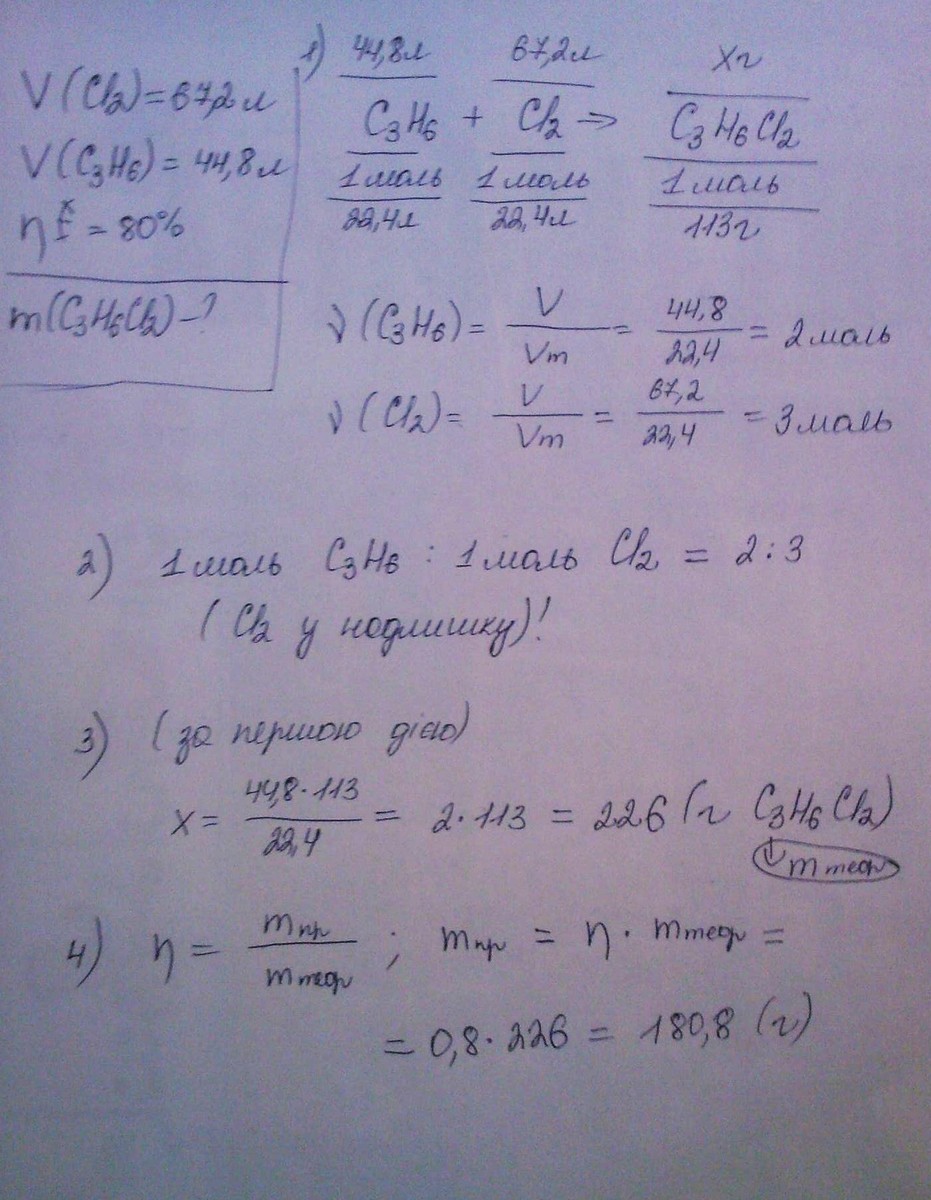 V(Cl2)=67,2л
V(C3H6)=44,8л
η = 80%
m(C3H6Cl2)–?
1) 44,8л 67,2л Xг
C3H6 + Cl2 ⇒ C3H6Cl2
1моль 1моль 1моль
22,4л 22,4л 113г
ν(C3H6)= V/Vm = 44,8/22,4 = 2моль
ν(Cl2)= V/Vm = 67,2/22,4 = 3моль
2) 1моль C3H6 : 1моль Cl2 = 2:3
(Cl2 у надлишку)!
3) (за першою дією)
X= 44,8·113/22,4 = 2·113 = 226 (г C3H6Cl2)
↓ mтеор
4) η = mпр/mтеор ; mпр = η · mтеор =
= 0,8·226 = 180,8 (г)